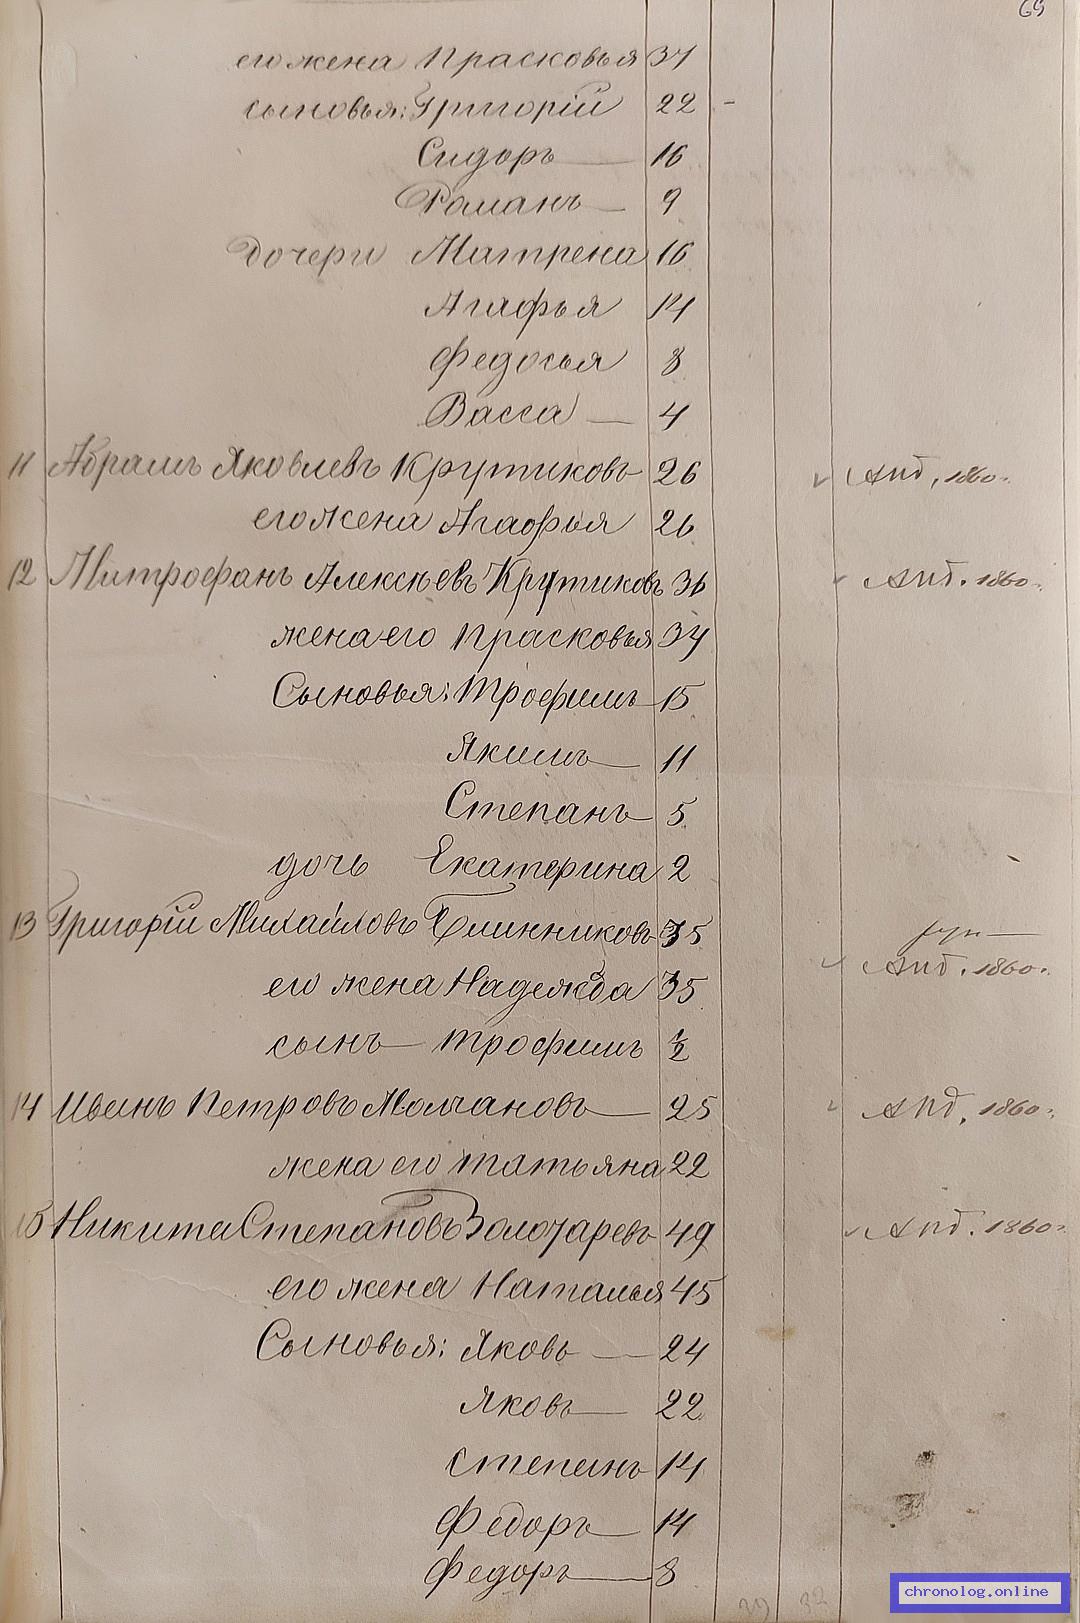 69
его жена Прасковья 37
сыновья: Григорій 22 -
Сидоръ 16
Романъ 9
Дочери Матрена 16
Агафья 14
Федосья 8
Васса 4
11 Абрамъ Яковлевъ Крутиковъ 26 Апд, 1860.
его жена Агафья 26
12 Митрофанъ Алексѣевъ Крутиковъ 36 Апд. 1860.
жена его Прасковья 34
Сыновья: Трофимъ 15
Якимъ 11
Степанъ 5
дочь Екатерина 2
13 Григорій Михайловъ Блинниковъ 35
его жена Надежда 35 Апд. 1860.
сынъ Трофимъ 1/2
14 Иванъ Петровъ Молчановъ 25 Апд. 1860.
жена его Татьяна 22
15 Никита Степановъ Золотаревъ 49 Апд. 1860.
его жена Наталья 45
Сыновья: Яковъ 24
Яковъ 22
Степанъ 14
Федоръ 14
Федоръ 8
29 32
chronolog.online